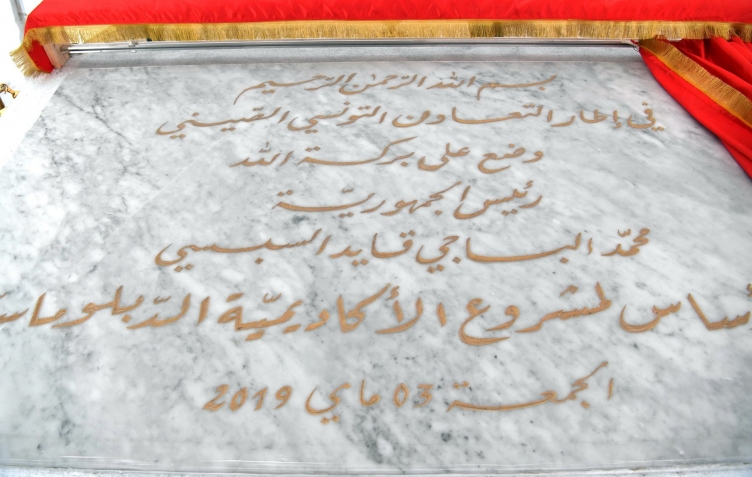 بسم الله الرحمن الرحيم
في إطار التعاون التونسي الصيني
وضع على بركة الله
رئيس الجمهوريّة
محمّد الباجي قايد السبسي
أساس لمشروع الأكاديميّة الدّبلوماسـ
الجمعة 03 ماي 2019